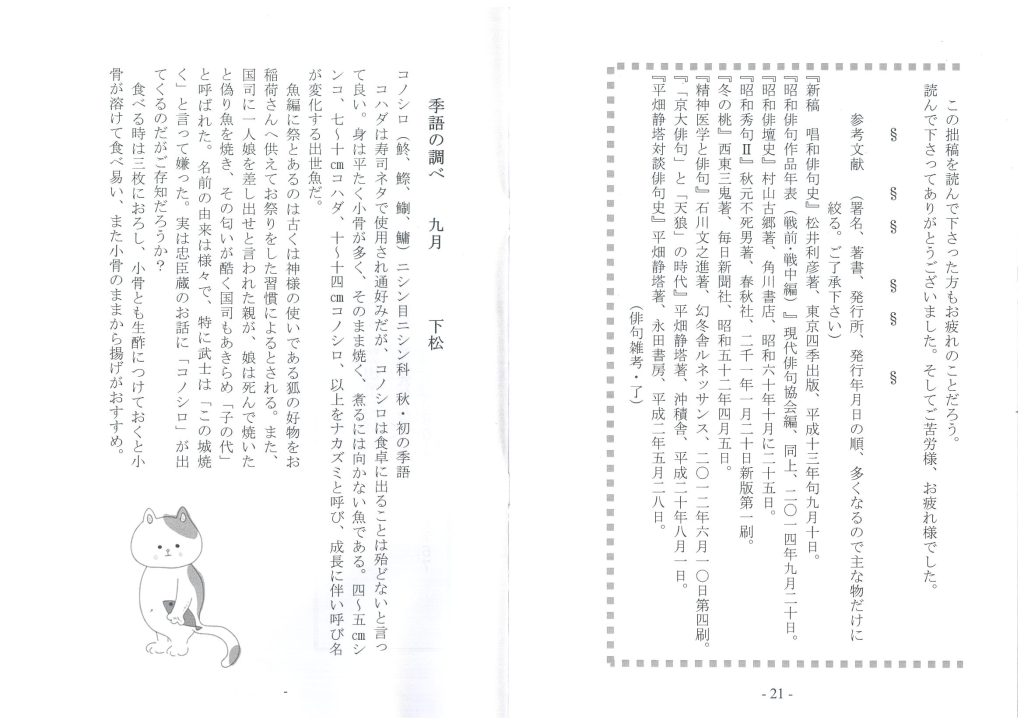 この拙稿を読んで下さった方もお疲れのことだろう。
読んで下さってありがとうございました。そしてご苦労様、お疲れ様でした。
§ § § § § §
参考文献 (署名、著書、発行所、発行年月日の順、多くなるので主な物だけに
絞る。ご了承下さい)
『新稿 昭和俳句史』松井利彦著、東京四季出版、平成十三年句九月十日。
『昭和俳句作品年表(戦前・戦中編)』現代俳句協会編、同上、二〇一四年九月二十日。
『昭和俳壇史』村山古郷著、角川書店、昭和六十年十月に二十五日。
『昭和秀句Ⅱ』秋元不死男著、春秋社、二千一年一月二十日新版第一刷。
『冬の桃』西東三鬼著、毎日新聞社、昭和五十二年四月五日。
『精神医学と俳句』石川文之進著、幻冬舎ルネッサンス、二〇一二年六月一〇日第四刷。
『「京大俳句」と「天狼」の時代』平畑静塔著、沖積舎、平成二十年八月一日。
『平畑静塔対談俳句史』平畑静塔著、永田書房、平成二年五月二八日。
(俳句雑考・了)
- 21 -
季語の調べ 九月 下松
コノシロ(鮗、鰶、鯯、鱅)ニシン目ニシン科 秋・初の季語
コハダは寿司ネタで使用され通好みだが、コノシロは食卓に出ることは殆どないと言っ
て良い。身は平たく小骨が多く、そのまま焼く、煮るには向かない魚である。四~五㎝シ
ンコ、七~十㎝コハダ、十~十四㎝コノシロ、以上をナカズミと呼び、成長に伴い呼び名
が変化する出世魚だ。
魚編に祭とあるのは古くは神様の使いである狐の好物をお
稲荷さんへ供えてお祭りをした習慣によるとされる。また、
国司に一人娘を差し出せと言われた親が、娘は死んで焼いた
と偽り魚を焼き、その匂いが酷く国司もあきらめ「子の代」
と呼ばれた。名前の由来は様々で、特に武士は「この城焼
く」と言って嫌った。実は忠臣蔵のお話に「コノシロ」が出
てくるのだがご存知だろうか?
食べる時は三枚におろし、小骨とも生酢につけておくと小
骨が溶けて食べ易い、また小骨のままから揚げがおすすめ。
-